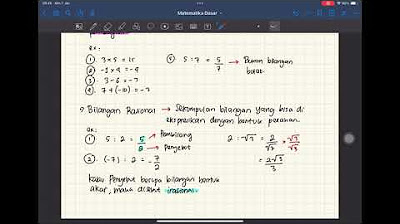 Matematika Dasar
ex:
①. 3 × 5 = 15
②. -2 × 4 = -8
③. 3 - 6 = -3
④. 7 + (-10) = -3
⑤. 5 : 7 = 5/7 → Bukan bilangan bulat.
5. Bilangan Rasional → Sekumpulan bilangan yang bisa di
ekspresikan dengan bentuk pecahan.
ex:
①. 5 : 2 = 5/2 → Pembilang
→ Penyebut
②. (-7) : 2 = -7/2
2 : √3 = 2/√3 × √3/√3
= 2√3/3
Kalau Penyebut berupa bilangan bentuk
akar, maka disebut irasional